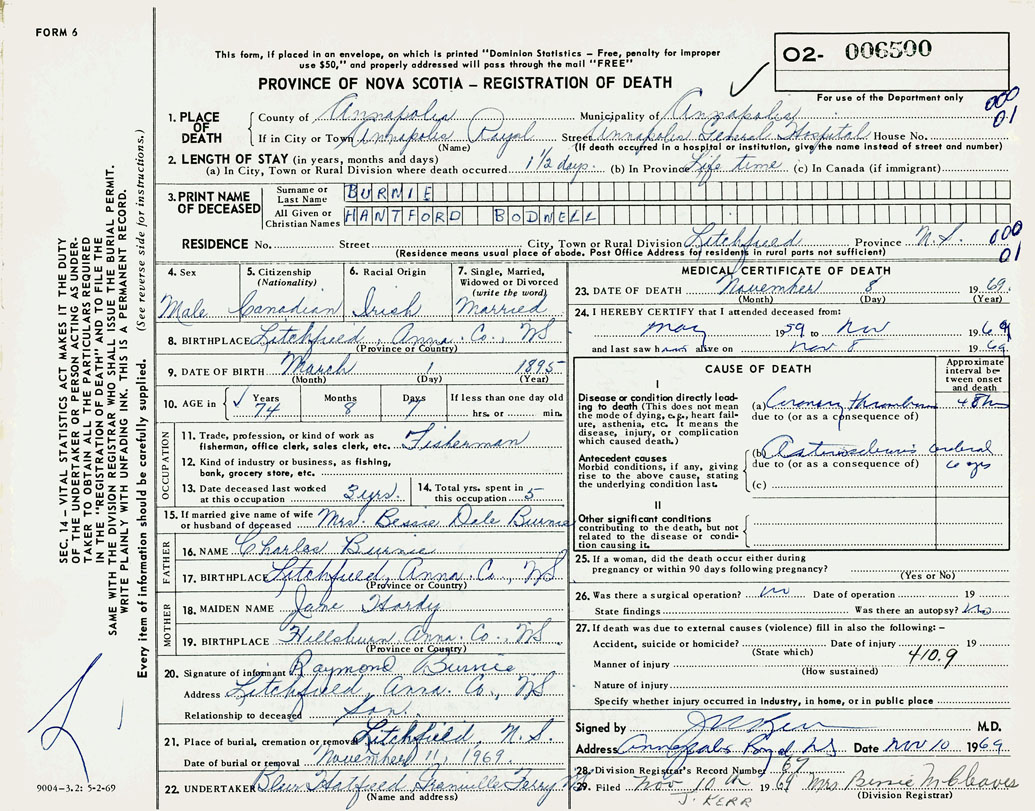 FORM 6
This form, if placed in an envelope, on which is printed "Dominion Statistics – Free, penalty for improper
use $50," and properly addressed will pass through the mail "FREE"
PROVINCE OF NOVA SCOTIA – REGISTRATION OF DEATH
O2- 006500
For use of the Department only
000
01
1. PLACE OF DEATH
County of Annapolis Municipality of Annapolis
If in City or Town Annapolis Royal Street Annapolis General Hospital House No.
(Name) (If death occurred in a hospital or institution, give the name instead of street and number)
2. LENGTH OF STAY (in years, months and days)
(a) In City, Town or Rural Division where death occurred 1 1/2 days. (b) In Province Life time (c) In Canada (if immigrant)
3. PRINT NAME OF DECEASED
Surname or Last Name BURNIE
All Given or Christian Names HANTFORD BODNELL
RESIDENCE No. Street City, Town or Rural Division Litchfield Province N.S. 000
(Residence means usual place of abode. Post Office Address for residents in rural parts not sufficient) 01
4. Sex Male
5. Citizenship (Nationality) Canadian
6. Racial Origin Irish
7. Single, Married, Widowed or Divorced (write the word) Married
8. BIRTHPLACE Litchfield, Anna. Co., NS
(Province or Country)
9. DATE OF BIRTH March 1 1895
(Month) (Day) (Year)
10. AGE in Years 74 Months 8 Days 7 If less than one day old
hrs. or min.
OCCUPATION
11. Trade, profession, or kind of work as
fisherman, office clerk, sales clerk, etc. Fisherman
12. Kind of industry or business, as fishing,
bank, grocery store, etc.
13. Date deceased last worked
at this occupation 3 yrs.
14. Total yrs. spent in
this occupation 5
15. If married give name of wife
or husband of deceased Mrs. Bessie Dale Burnie
FATHER
16. NAME Charles Burnie
17. BIRTHPLACE Litchfield, Anna. Co., NS
(Province or Country)
MOTHER
18. MAIDEN NAME Jane Hardy
19. BIRTHPLACE Hillsburn, Anna. Co., NS
(Province or Country)
20. Signature of informant Raymond Burnie
Address Litchfield, Anna. Co., NS
Relationship to deceased Son.
21. Place of burial, cremation or removal Litchfield, N.S.
Date of burial or removal November 11, 1969.
22. UNDERTAKER Hatfield Granville Ferry
(Name and address)
MEDICAL CERTIFICATE OF DEATH
23. DATE OF DEATH November 8 1969.
(Month) (Day) (Year)
24. I HEREBY CERTIFY that I attended deceased from:
May 1959 to Nov 1969
and last saw him alive on Nov 8 1969
CAUSE OF DEATH
Approximate interval between onset and death
I
Disease or condition directly lead-
ing to death (This does not mean
the mode of dying, e.g., heart fail-
ure, asthenia, etc. It means the
disease, injury, or complication
which caused death.)
(a) Coronary thrombosis 48 hrs
due to (or as a consequence of)
Antecedent causes
Morbid conditions, if any, giving
rise to the above cause, stating
the underlying condition last.
(b)
due to (or as a consequence of)
(c)
II
Other significant conditions
contributing to the death, but not
related to the disease or condi-
tion causing it.
25. If a woman, did the death occur either during
pregnancy or within 90 days following pregnancy?
(Yes or No)
26. Was there a surgical operation? no Date of operation 19
State findings Was there an autopsy? no
27. If death was due to external causes (violence) fill in also the following: –
Accident, suicide or homicide? Date of injury 19
(State which) 410.9
Manner of injury
(How sustained)
Nature of injury
Specify whether injury occurred in industry, in home, or in public place
Signed by M.D.
Address Annapolis Royal NS Date Nov 10 1969
28. Division Registrar's Record Number 67
29. Filed Nov 10th 1969 Mrs Bessie McCleaves
J. KERR (Division Registrar)
SEC. 14 – VITAL STATISTICS ACT MAKES IT THE DUTY
OF THE UNDERTAKER OR PERSON ACTING AS UNDER-
TAKER TO OBTAIN ALL THE PARTICULARS REQUIRED
IN THE "REGISTRATION OF DEATH" AND TO FILE THE
SAME WITH THE DIVISION REGISTRAR WHO SHALL ISSUE THE BURIAL PERMIT.
WRITE PLAINLY WITH UNFADING INK. THIS IS A PERMANENT RECORD.
Every item of information should be carefully supplied. (See reverse side for instructions.)
9004–3.2: 5-2-69